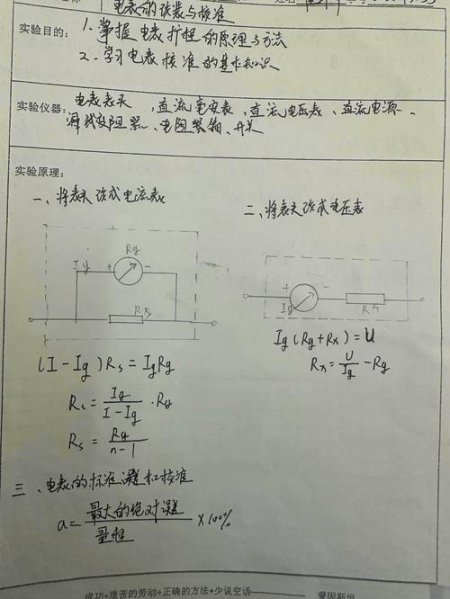 电表的改装与校准
实验目的: 1. 掌握电表扩程的原理与方法
2. 学习电表校准的基本知识
实验仪器: 电表表头、直流毫安表、直流电压表、直流电源、
滑线变阻器、电阻箱、开关
实验原理:
一、将表头改成电流表
二、将表头改成电压表
Ig + Rg -
Rs
+ - Ig Rx
(I-Ig)Rs = IgRg
Rs = Ig/(I-Ig)·Rg
Rs = Rg/(n-1)
Ig(Rg+Rx)=U
Rx = U/Ig - Rg
三、电表的标准误差和校准
a = 最大的绝对误差/量程 ×100%
成功=艰苦的劳动+正确的方法+少说空话
爱因斯坦